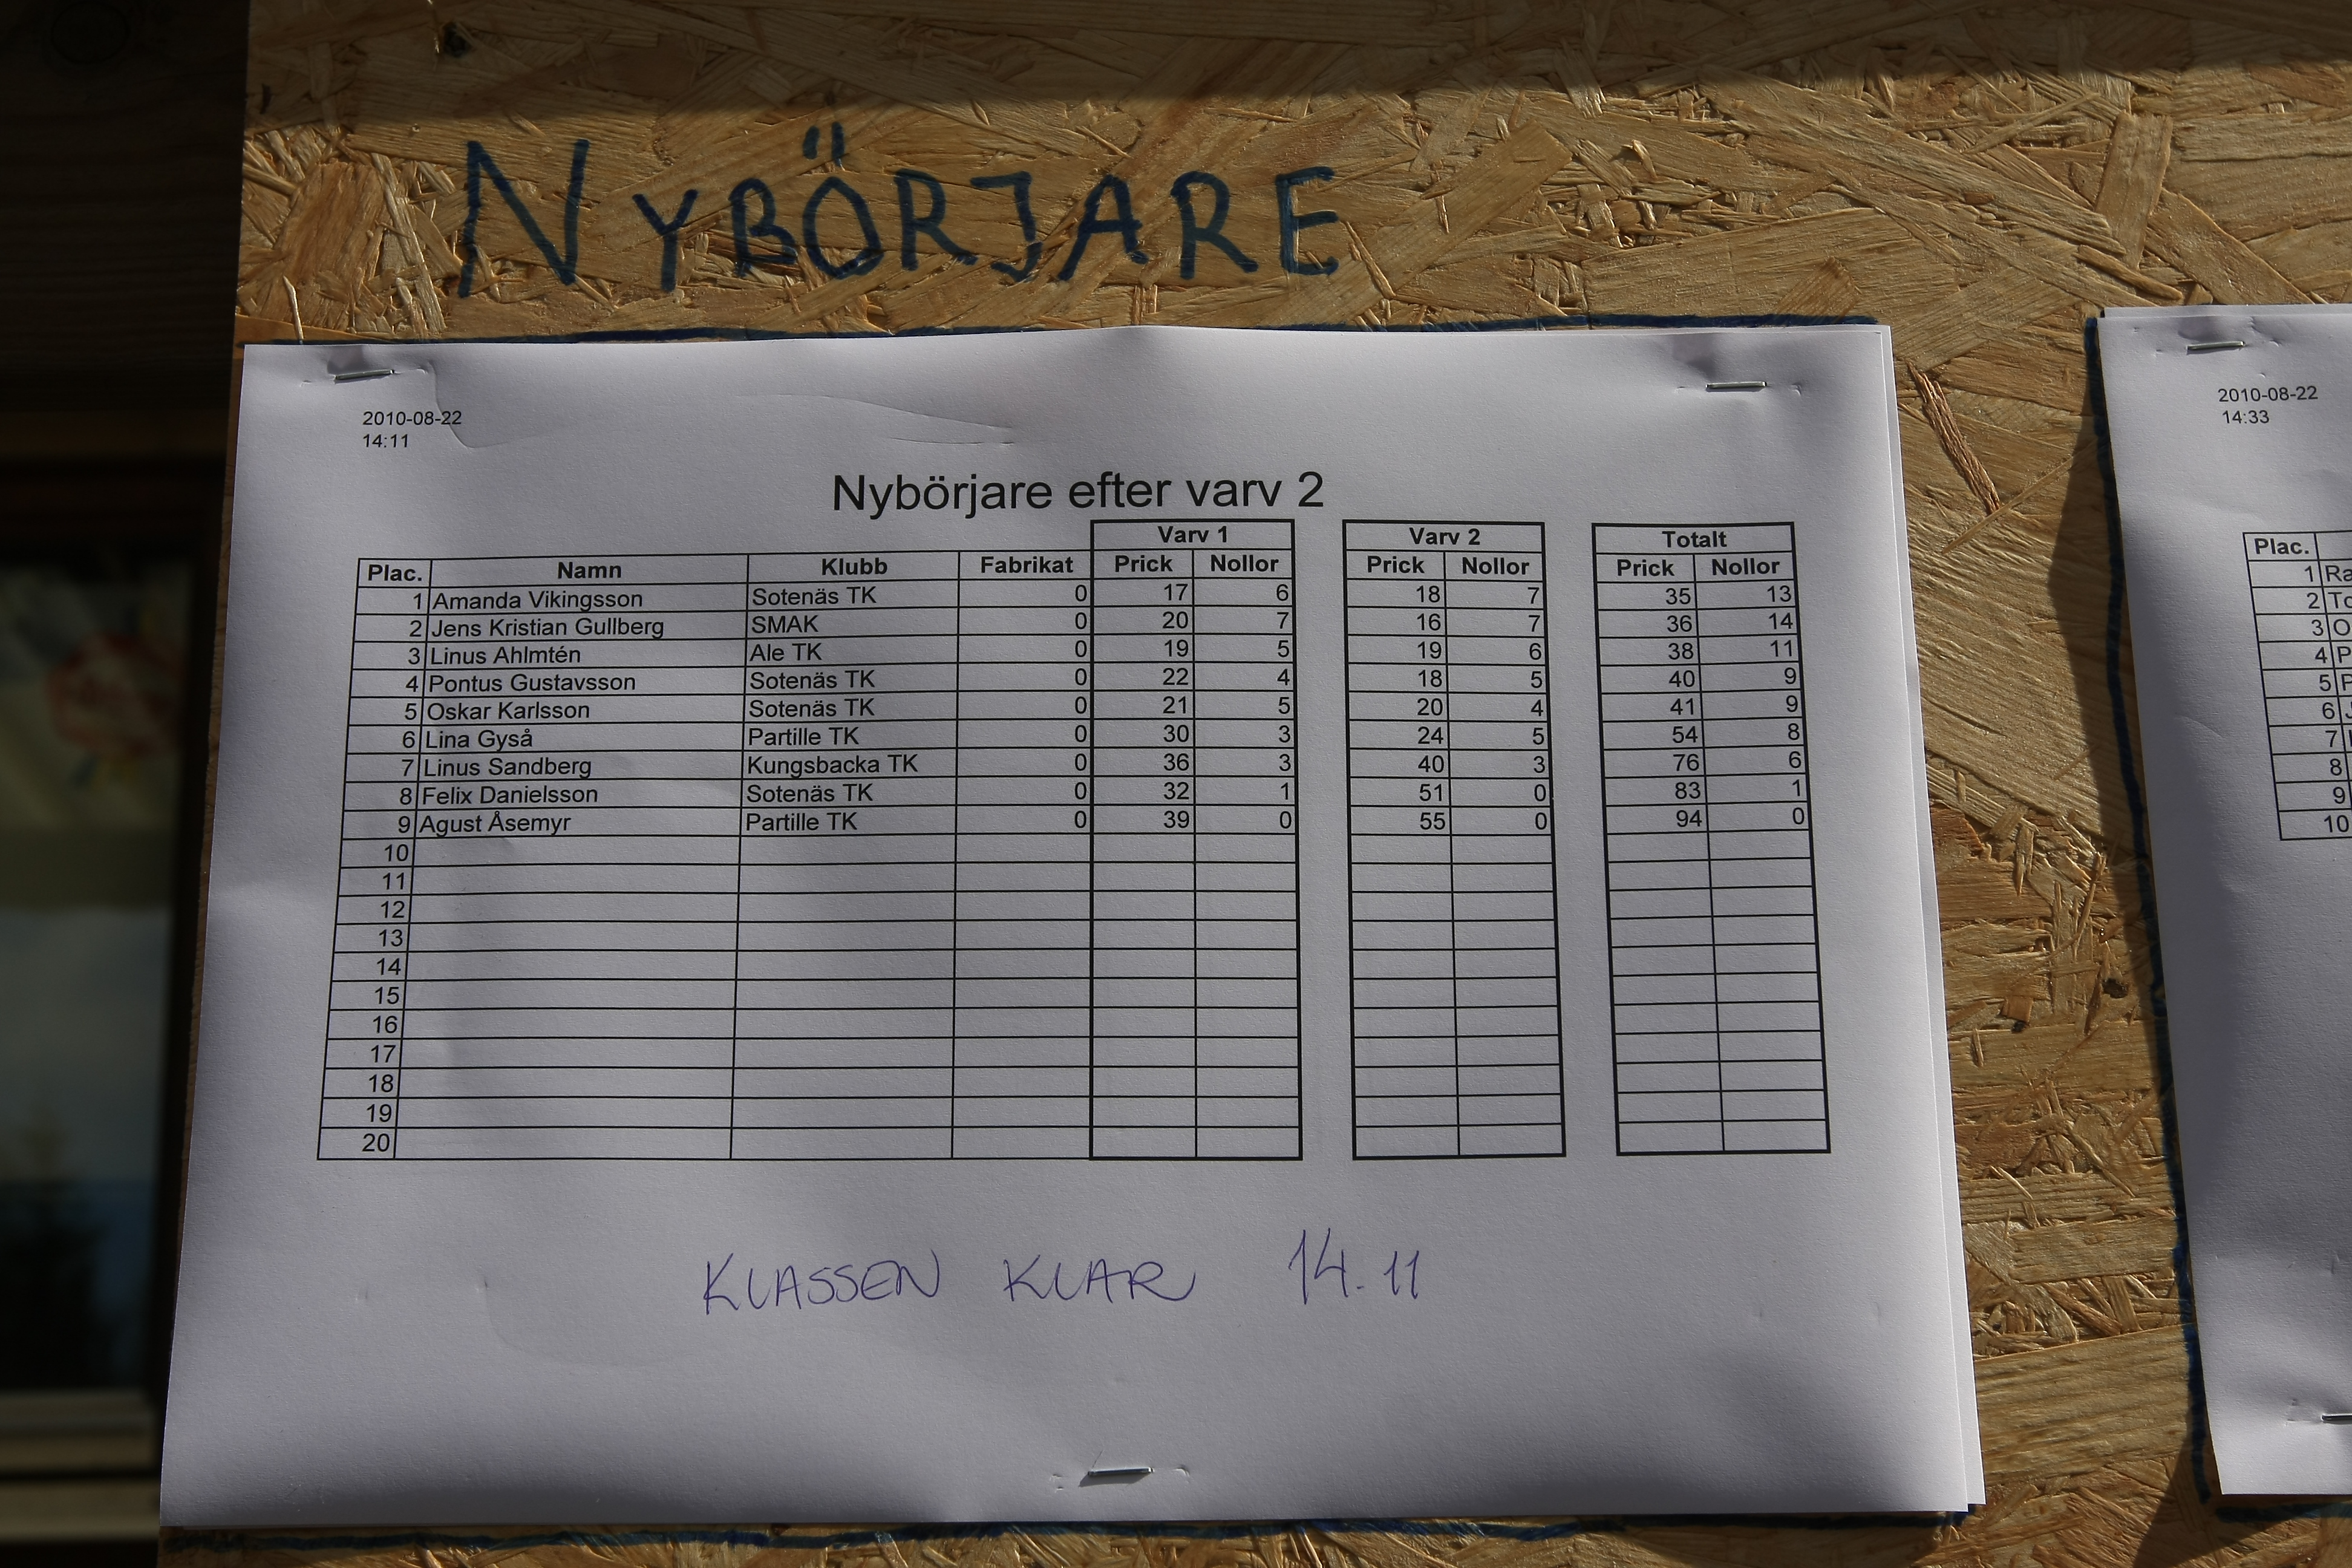 NYBÖRJARE
2010-08-22
14:11
Nybörjare efter varv 2
Varv 1 Varv 2 Totalt
Plac. Namn Klubb Fabrikat Prick Nollor Prick Nollor Prick Nollor
1 Amanda Vikingsson Sotenäs TK 0 17 6 18 7 35 13
2 Jens Kristian Gullberg SMAK 0 20 7 16 7 36 14
3 Linus Ahlmtén Ale TK 0 19 5 19 6 38 11
4 Pontus Gustavsson Sotenäs TK 0 22 4 18 5 40 9
5 Oskar Karlsson Sotenäs TK 0 21 5 20 4 41 9
6 Lina Gyså Partille TK 0 30 3 24 5 54 8
7 Linus Sandberg Kungsbacka TK 0 36 3 40 3 76 6
8 Felix Danielsson Sotenäs TK 0 32 1 51 0 83 1
9 Agust Åsemyr Partille TK 0 39 0 55 0 94 0
10
11
12
13
14
15
16
17
18
19
20
KLASSEN KLAR 14.11
2010-08-22
14:33
Plac.
1 Ra
2 To
3 O
4 P
5
6
7
8
9
10